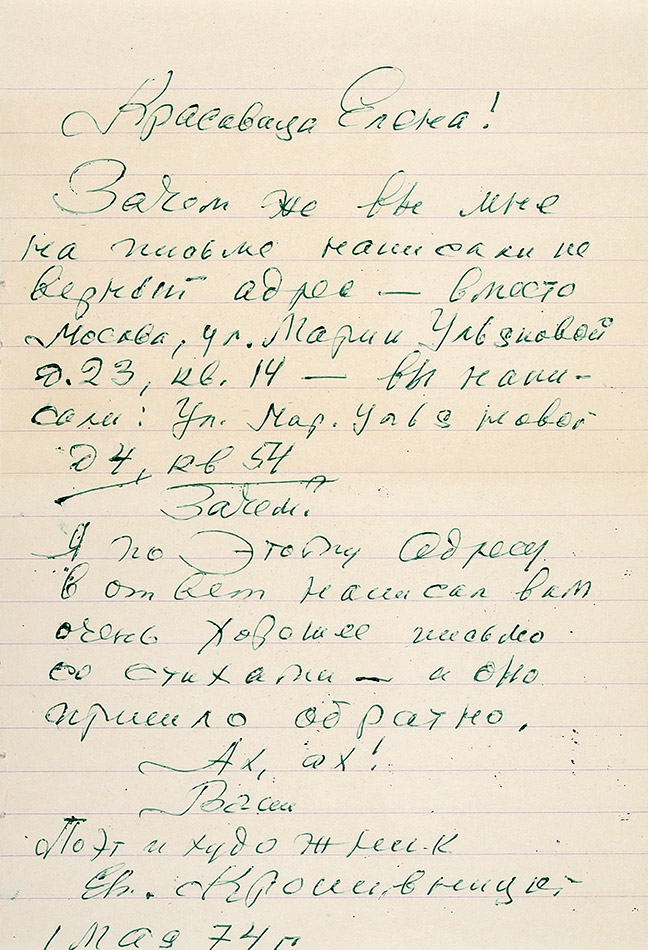 Красавица Елена!
Зачем же вы мне
на письме написали не
верный адрес — вместо
Москва, ул. Марии Ульяновой
д. 23, кв. 14 — вы напи-
сали: Ул. Мар. Ульяновой
д 4, кв 54
Зачем?
Я по этому адресу
в ответ написал вам
очень хорошее письмо
со стихами — и оно
пришло обратно.
Ах, ах!
Ваш
Поэт и художник
Ев. Кропивницкий
1 мая 74 г